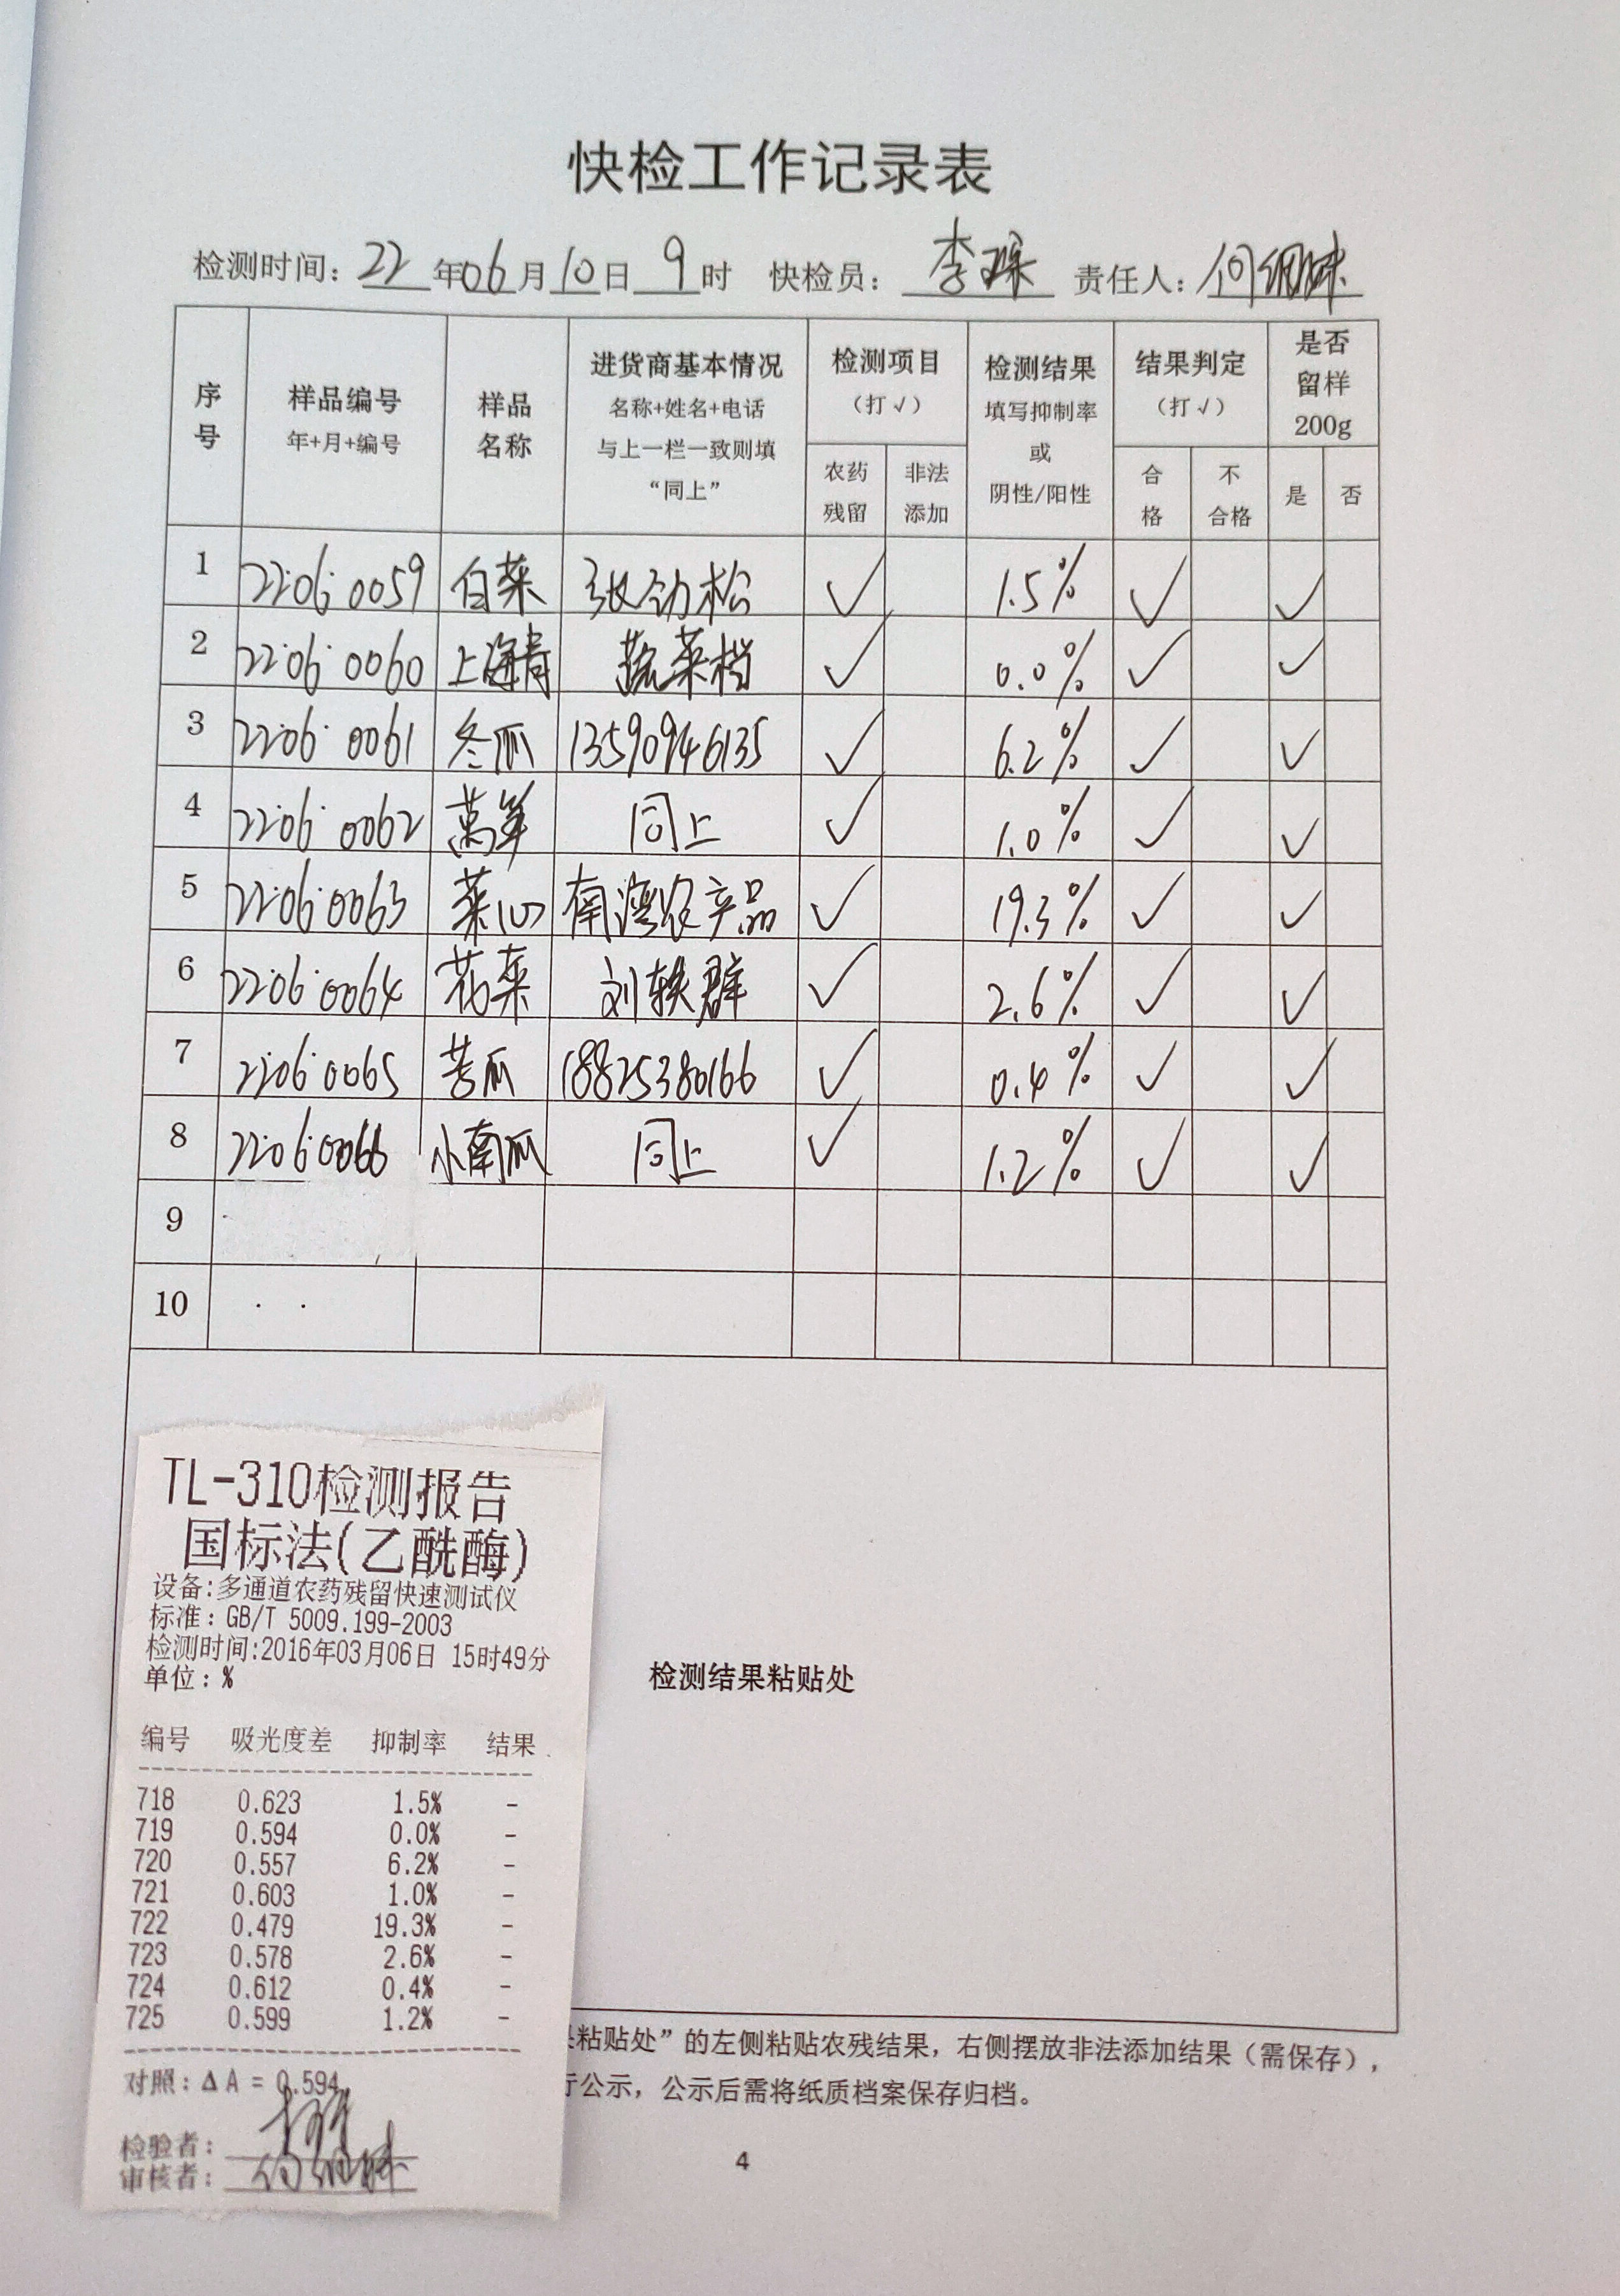 快检工作记录表
检测时间：22年06月10日9时 快检员：李 责任人：何
序号 样品编号 年+月+编号 样品名称 进货商基本情况 名称+姓名+电话 与上一栏一致则填“同上” 检测项目（打√） 农药残留 非法添加 检测结果 填写抑制率或阴性/阳性 结果判定（打√） 合格 不合格 是否留样200g 是 否
1 2206 0059 白菜 张劲松 ✓ 1.5% ✓ ✓
2 2206 0060 上海青 蔬菜档 ✓ 0.0% ✓ ✓
3 2206 0061 冬瓜 13590946135 ✓ 6.2% ✓ ✓
4 2206 0062 同上 ✓ 1.0% ✓ ✓
5 2206 0063 菜心 南湾农产品 ✓ 19.3% ✓ ✓
6 2206 0064 花菜 刘轶群 ✓ 2.6% ✓ ✓
7 2206 0065 苦瓜 18825380166 ✓ 0.4% ✓ ✓
8 2206 0066 小南瓜 同上 ✓ 1.2% ✓ ✓
9
10
检测结果粘贴处
TL-310检测报告
国标法(乙酰酶)
设备:多通道农药残留快速测试仪
标准：GB/T 5009.199-2003
检测时间:2016年03月06日 15时49分
单位：%
编号 吸光度差 抑制率 结果
718 0.623 1.5% -
719 0.594 0.0% -
720 0.557 6.2% -
721 0.603 1.0% -
722 0.479 19.3% -
723 0.578 2.6% -
724 0.612 0.4% -
725 0.599 1.2% -
对照：ΔA = 0.594
检验者：
审核者：何
粘贴处”的左侧粘贴农残结果，右侧摆放非法添加结果（需保存），
公示，公示后需将纸质档案保存归档。
4